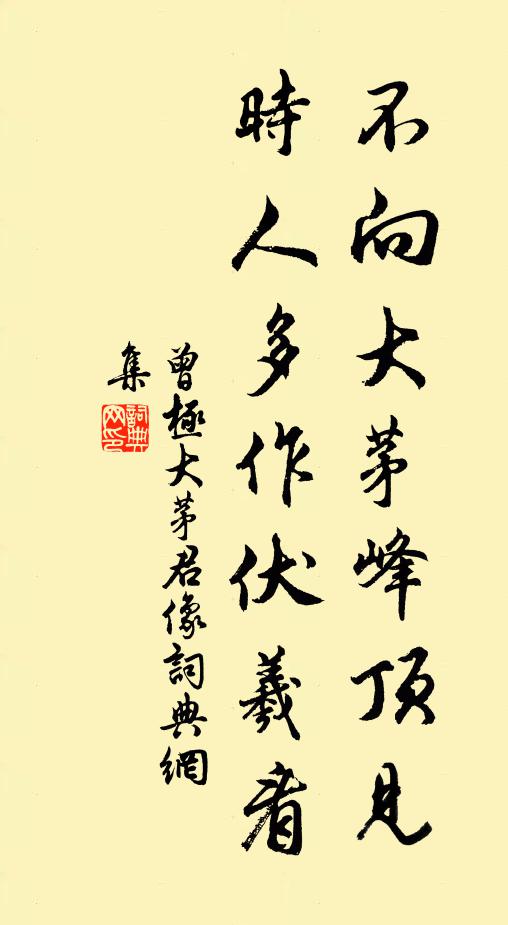 不向大茅峰頂見
時人多作伏羲看
曾極大茅君像詞典網
集
詞典
网印